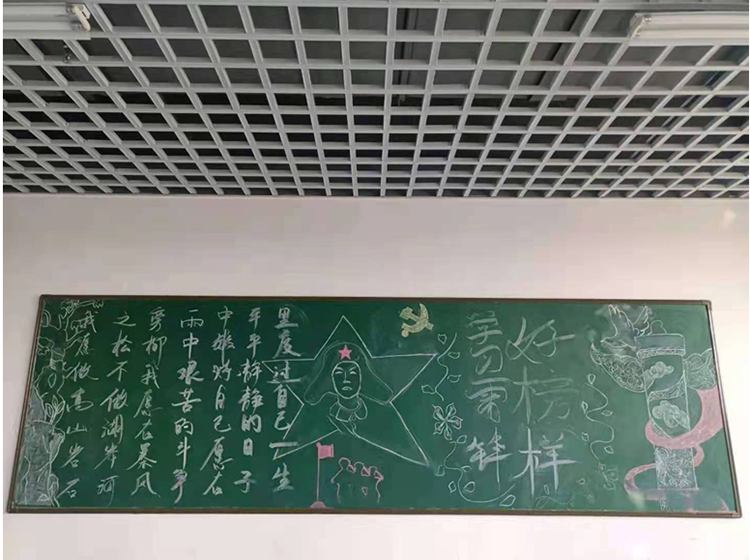 我愿做高山岩石
之松不做湖岸河
旁柳我愿在暴风
雨中艰苦的斗争
中锻炼自己愿在
平平静静的日子
里度过自己一生
学习雷锋
好榜样